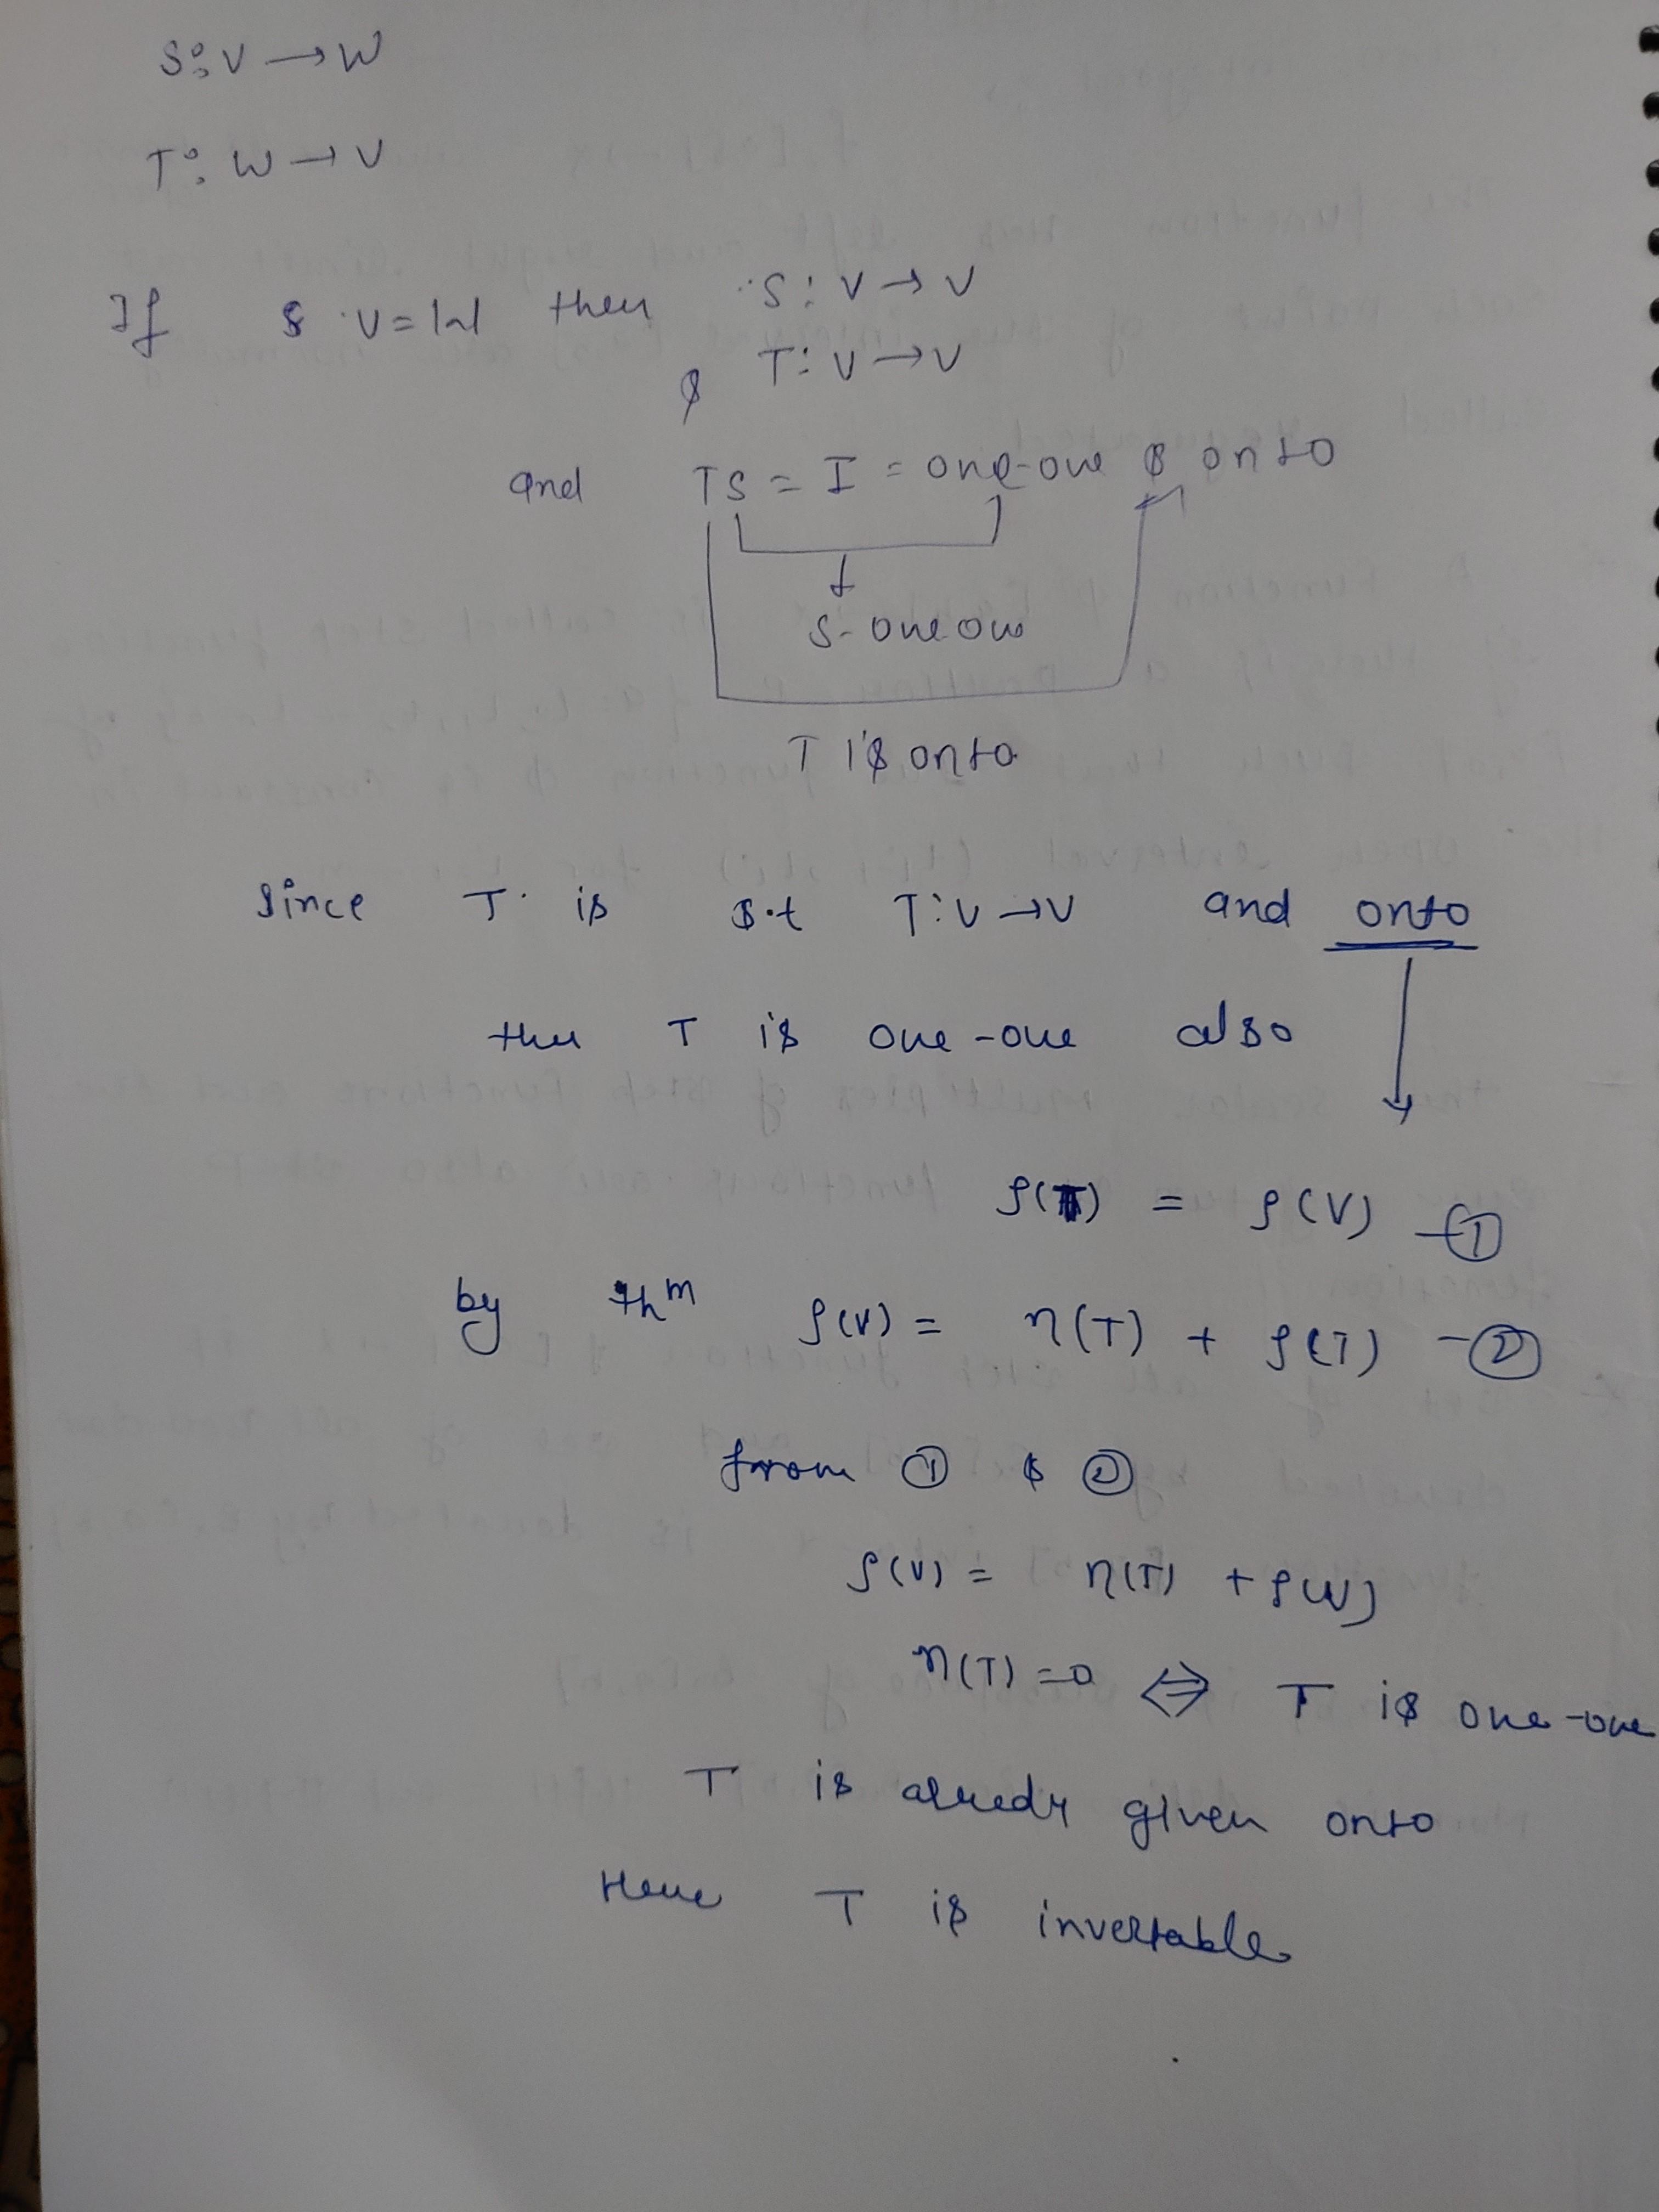 S: V → W
T: W → V
If V = W then S: V → V
& T: V → V
and TS = I = one-one & onto
S- one one
T is onto
Since T is s.t T: V → V and onto
then T is one-one also
ρ(T) = ρ(V) -①
by thm ρ(V) = η(T) + ρ(T) -②
from ① & ②
ρ(V) = η(T) + ρ(V)
η(T) = 0 ⇔ T is one-one
T is alredy given onto
Hence T is invertable